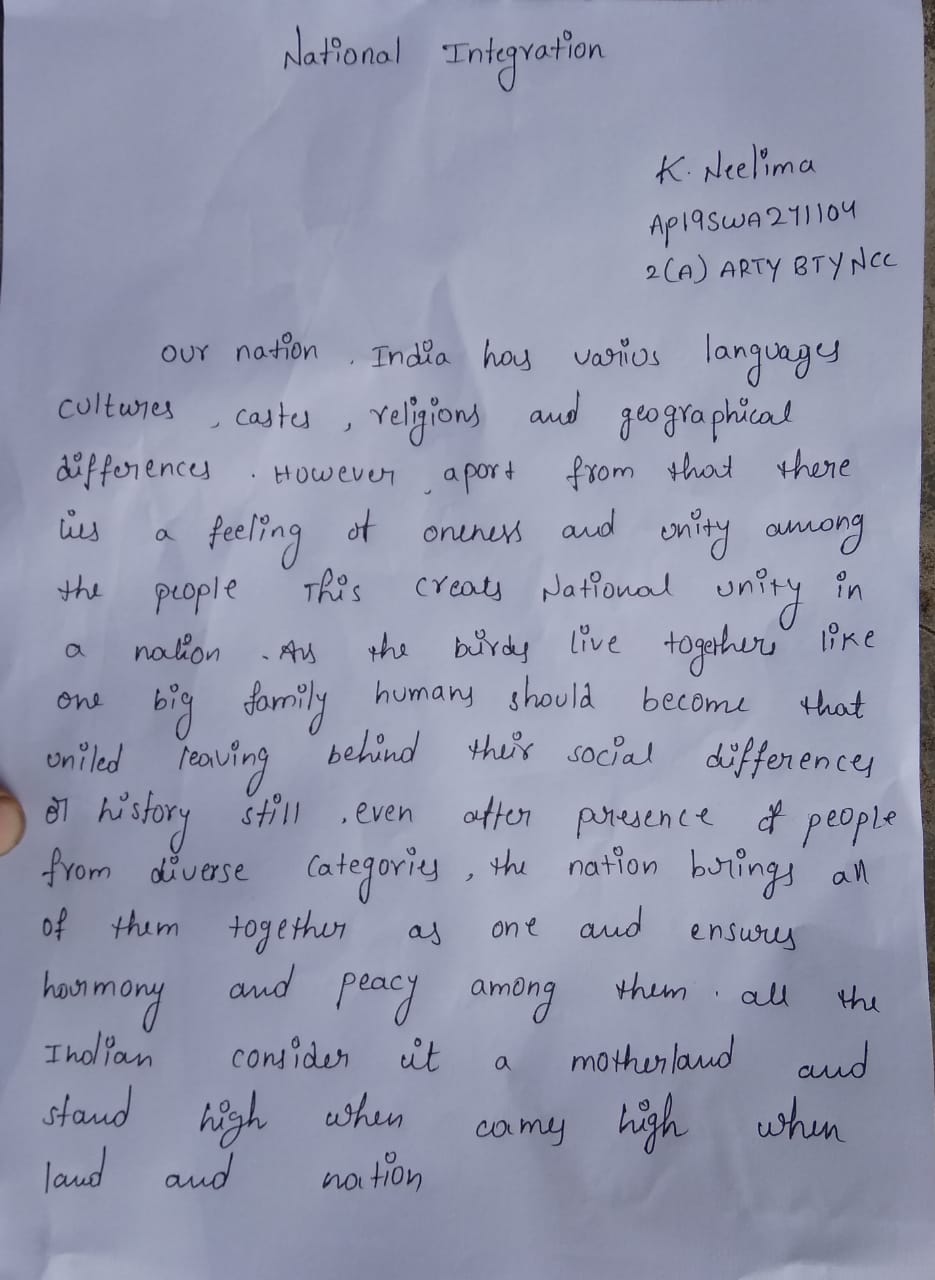 National Integration
K. Neelima
AP19SWA271104
2(A) ARTY BTY NCC
our nation . India has varios languages
cultures , castes , religions and geographical
differences . However , aport from that there
lies a feeling of oneness and unity among
the people This creats National unity in
a nation . As the birds live together like
one big family humans should become that
uniled leaving behind their social differences
or history still , even after presence of people
from diverse categories , the nation brings all
of them together as one and ensures
harmony and peacy among them . all the
Indian consider it a motherland and
stand high when comes high when
land and nation